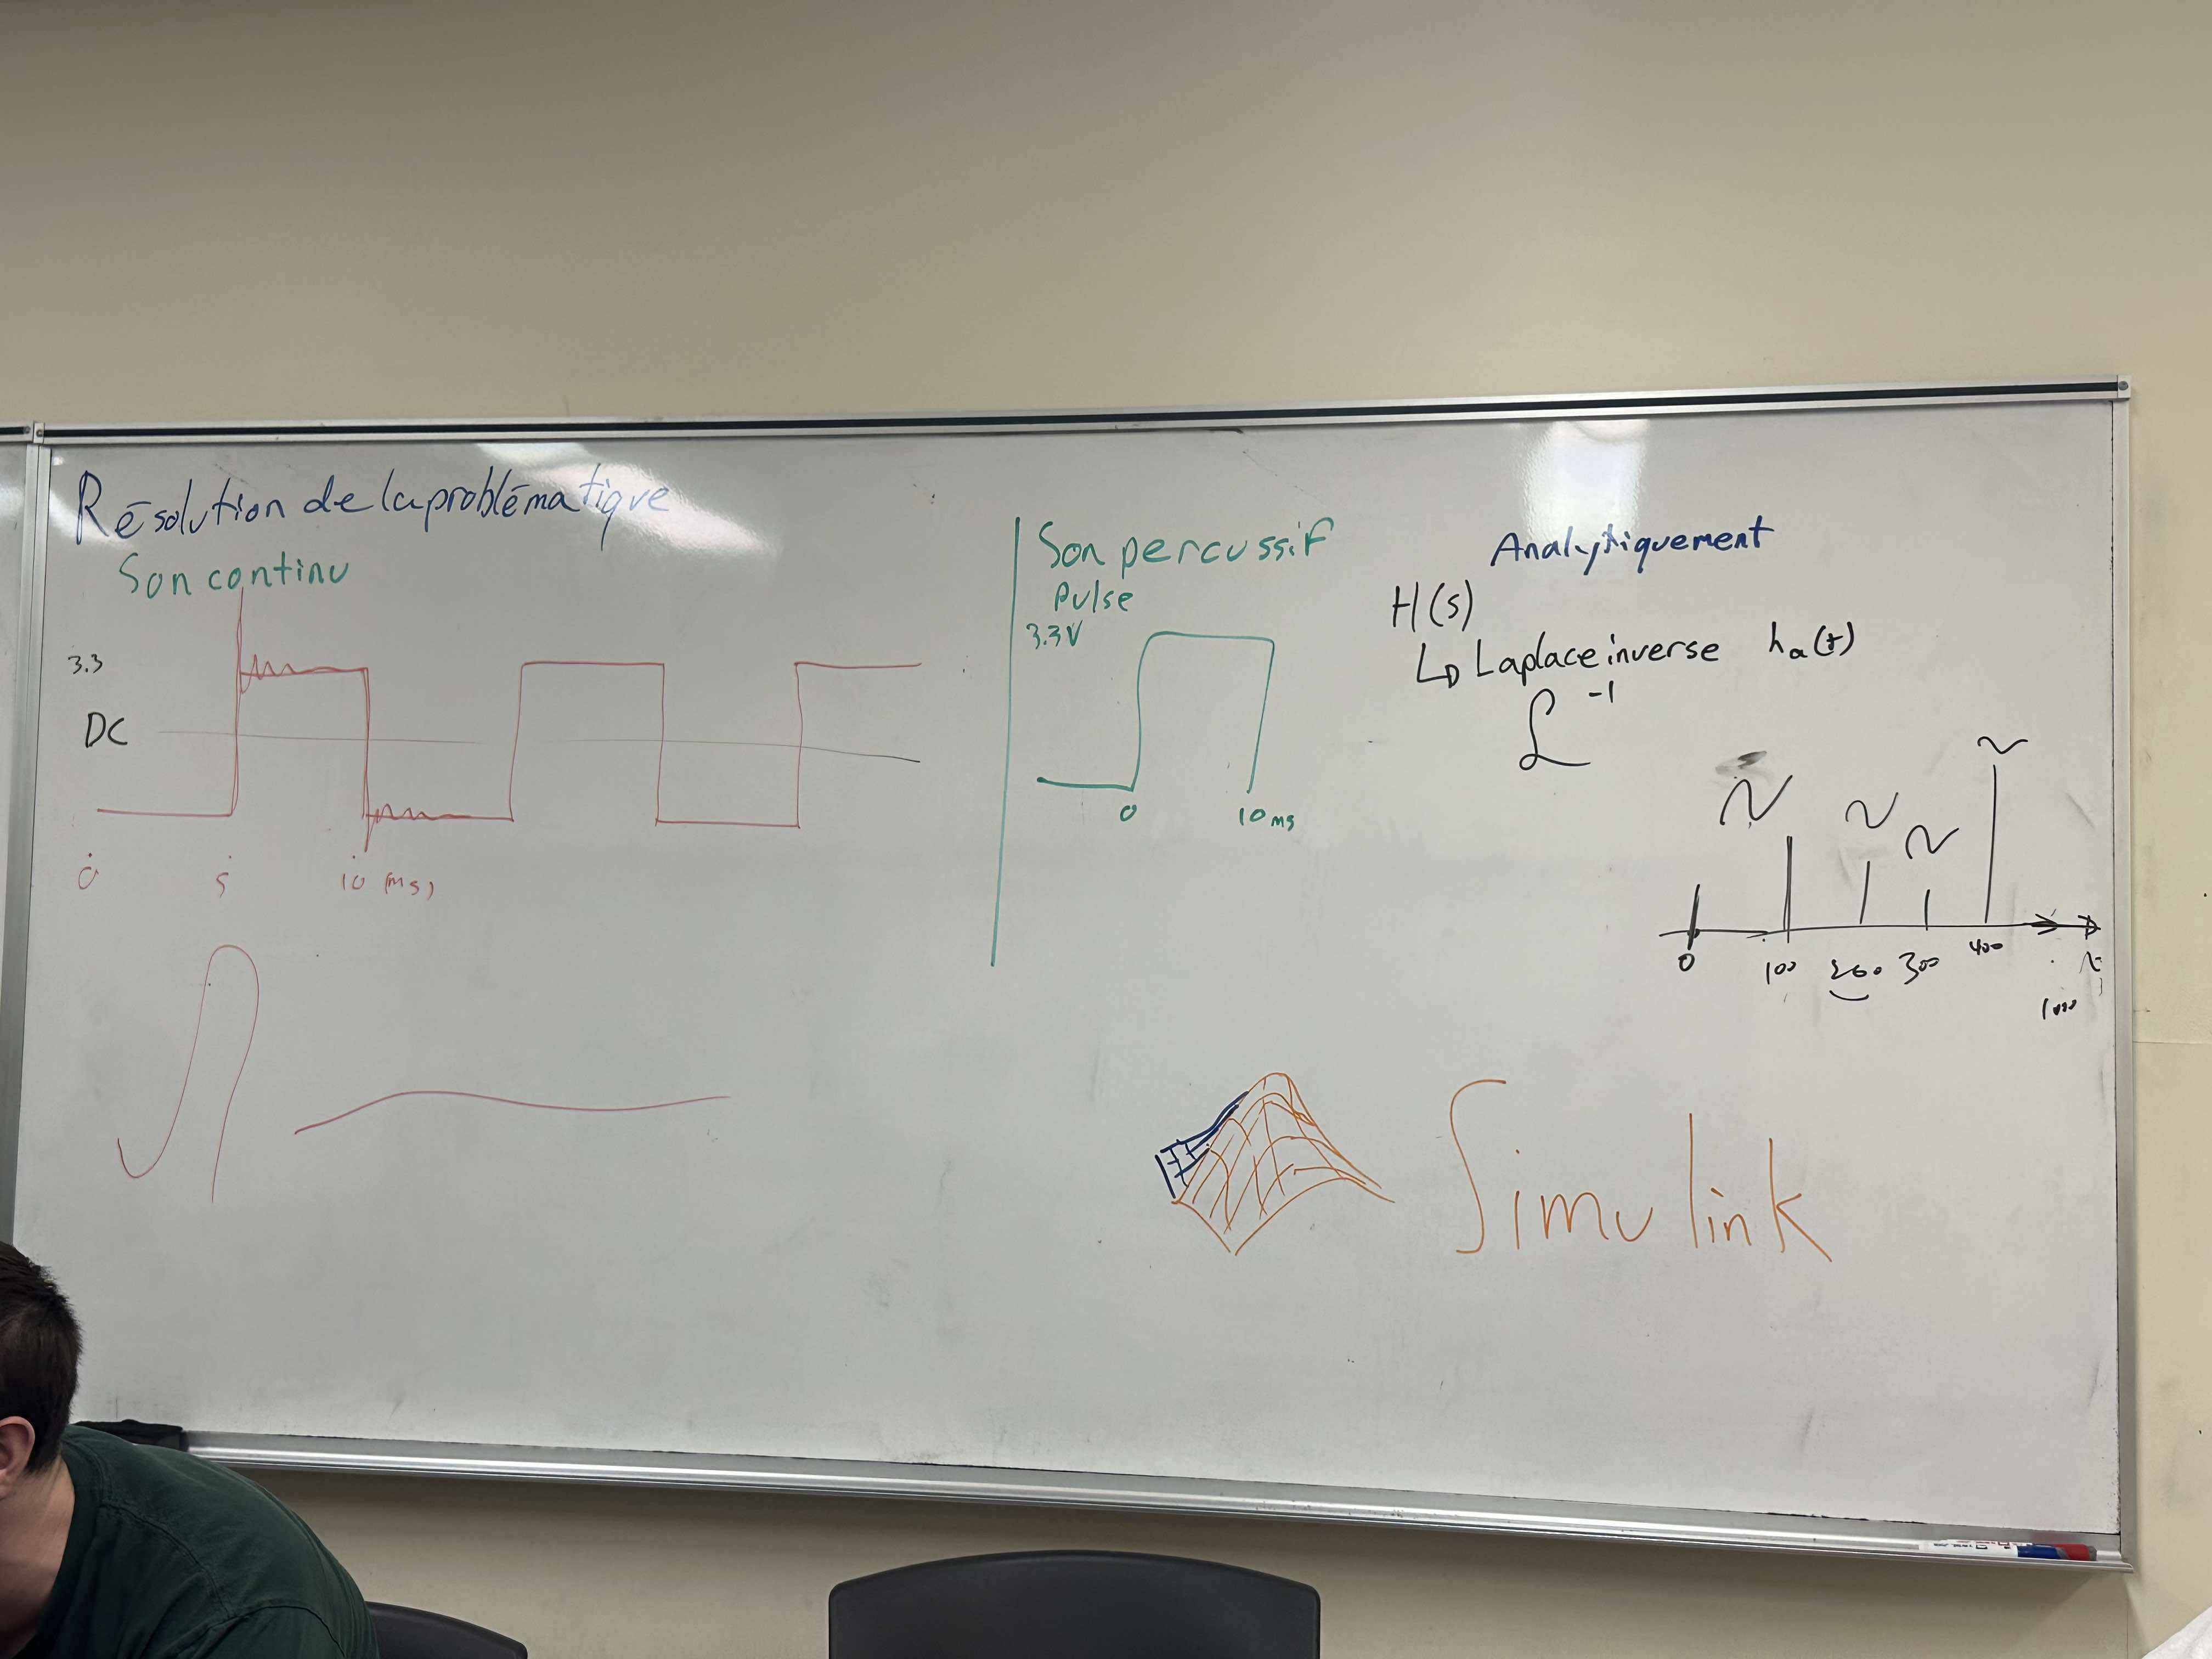 Résolution de la problématique
Son continu
3.3
DC
0 5 10 (ms)
Son percussif
Pulse
3.3V
0 10 ms
Analytiquement
H(s)
↳ Laplace inverse hₐ(t)
ℒ⁻¹
0 100 200 300 400
Simulink